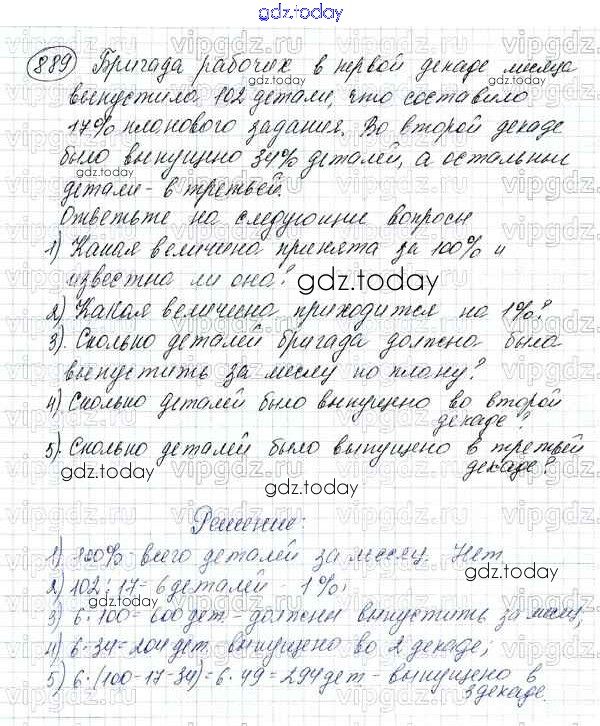 gdz.today
889 Бригада рабочих в первой декаде месяца
выпустила 102 детали, что составило
17% планового задания. Во второй декаде
было выпущено 34% деталей, а остальные
детали - в третьей.
Ответьте на следующие вопросы
1) Какая величина принята за 100% и
известна ли она?
2) Какая величина приходится на 1%?
3). Сколько деталей бригада должна была
выпустить за месяц по плану?
4) Сколько деталей было выпущено во второй
декаде?
5). Сколько деталей было выпущено в третьей
декаде?
Решение:
1) 100% - всего деталей за месяц. Нет
2) 102:17=6 деталей - 1%;
3) 6·100=600 дет. - должны выпустить за месяц;
4) 6·34=204 дет. выпущено во 2 декаде;
5) 6·(100-17-34)=6·49=294 дет - выпущено в
3 декаде.